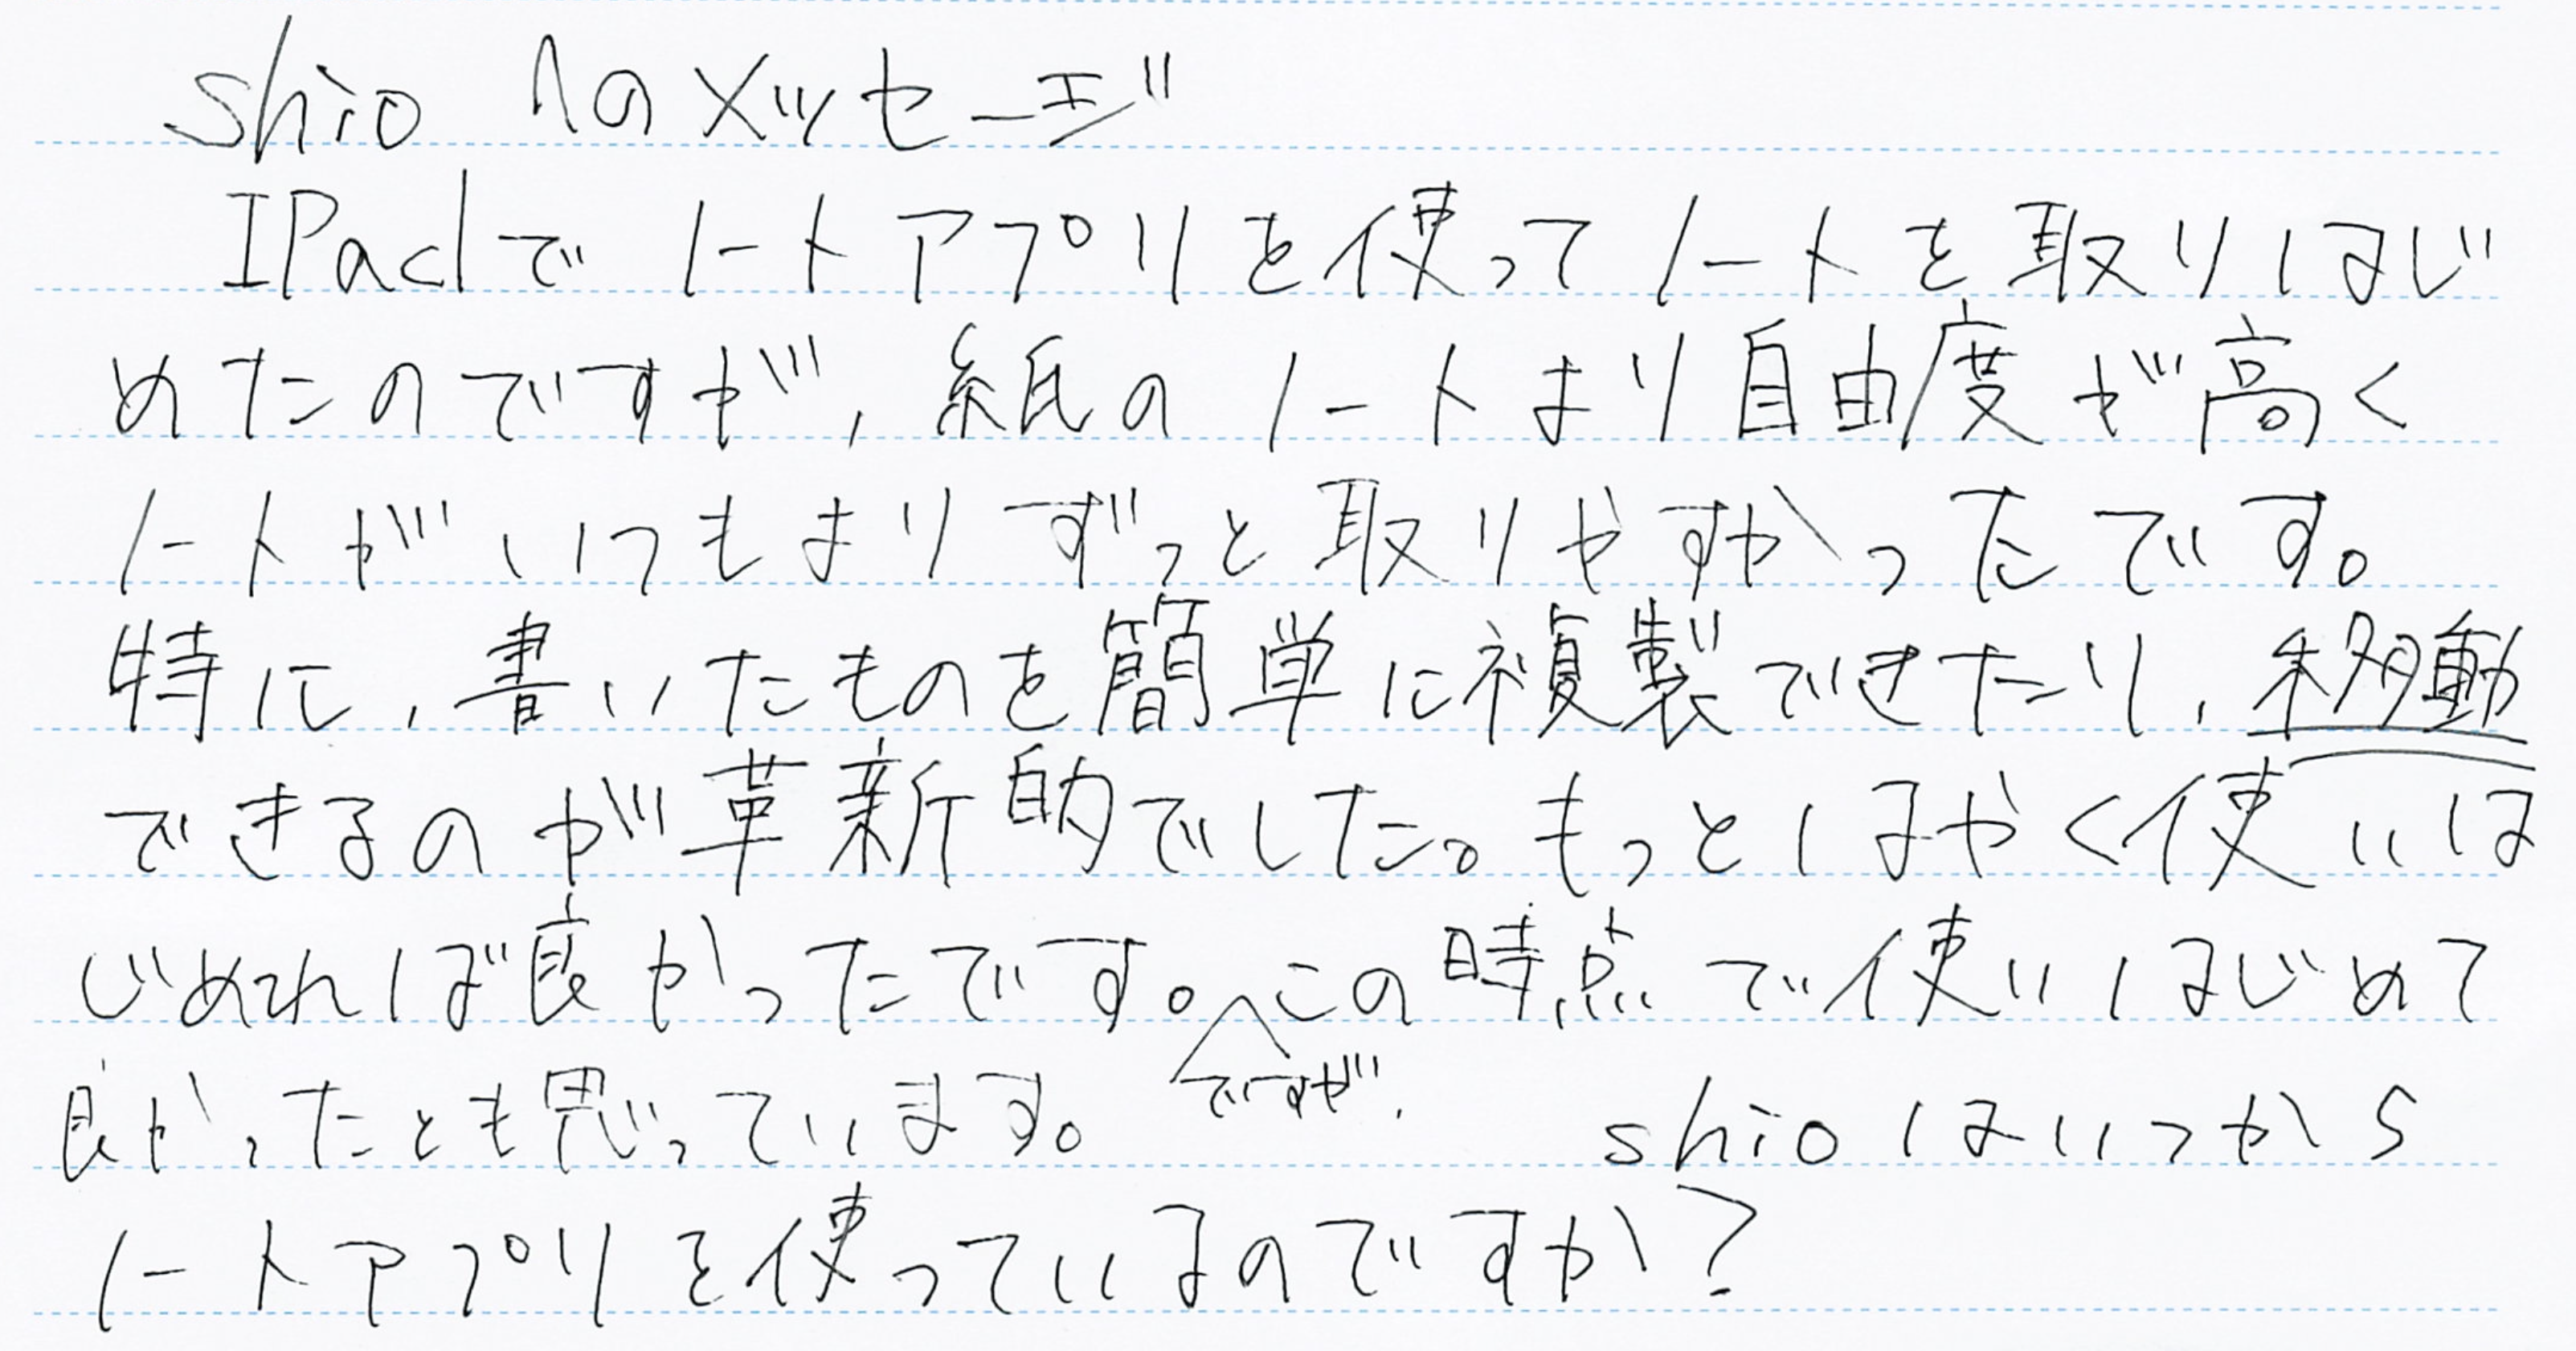 shioへのメッセージ
IPadでノートアプリを使ってノートを取りはじ
めたのですが、紙のノートより自由度が高く
ノートがいつもよりずっと取りやすかったです。
特に、書いたものを簡単に複製できたり、移動
できるのが革新的でした。もっとはやく使いは
じめれば良かったです。この時点で使いはじめて
ですが、
良かったとも思っています。 shioはいつから
ノートアプリを使っているのですか?